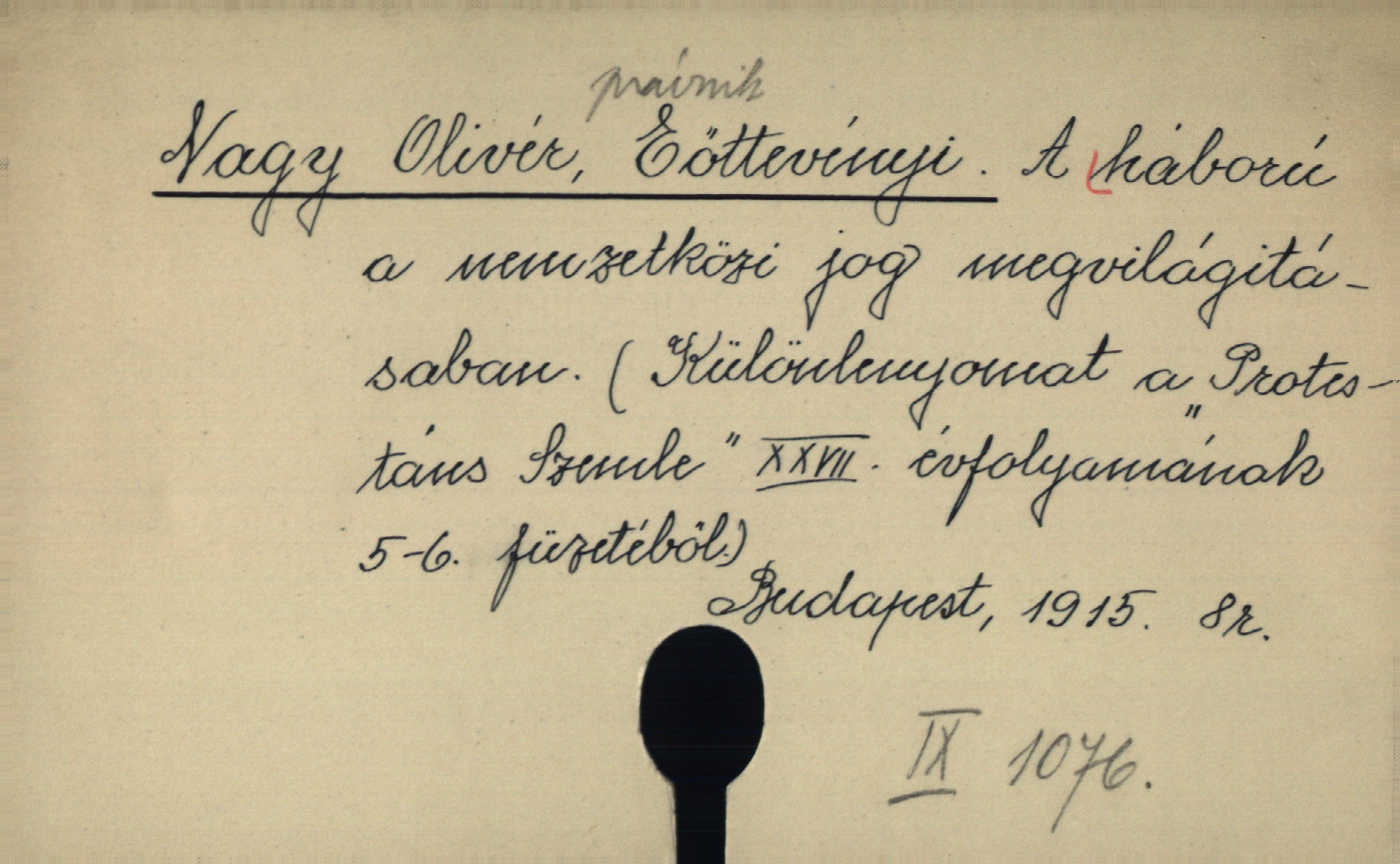 právnik
Nagy Olivér, Eöttevényi. A háború
a nemzetközi jog megvilágitá-
sában. (Különlenyomat a „Protes-
táns Szemle" XXVII. évfolyamának
5-6. füzetéből.)
Budapest, 1915. 8r.
IX 1076.